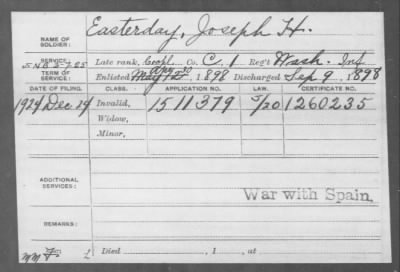 NAME OF SOLDIER: Easterday, Joseph H.
SERVICE: Late rank, Corpl. Co. C, 1 Reg't Wash. Inf
TERM OF SERVICE: Enlisted May 12, 1898 Discharged Sep 9, 1898
DATE OF FILING. CLASS. APPLICATION NO. LAW. CERTIFICATE NO.
1924 Dec 29 Invalid, 1511379 5/20 1260235
Widow,
Minor,
ADDITIONAL SERVICES:
War with Spain.
REMARKS:
Died , 1 , at